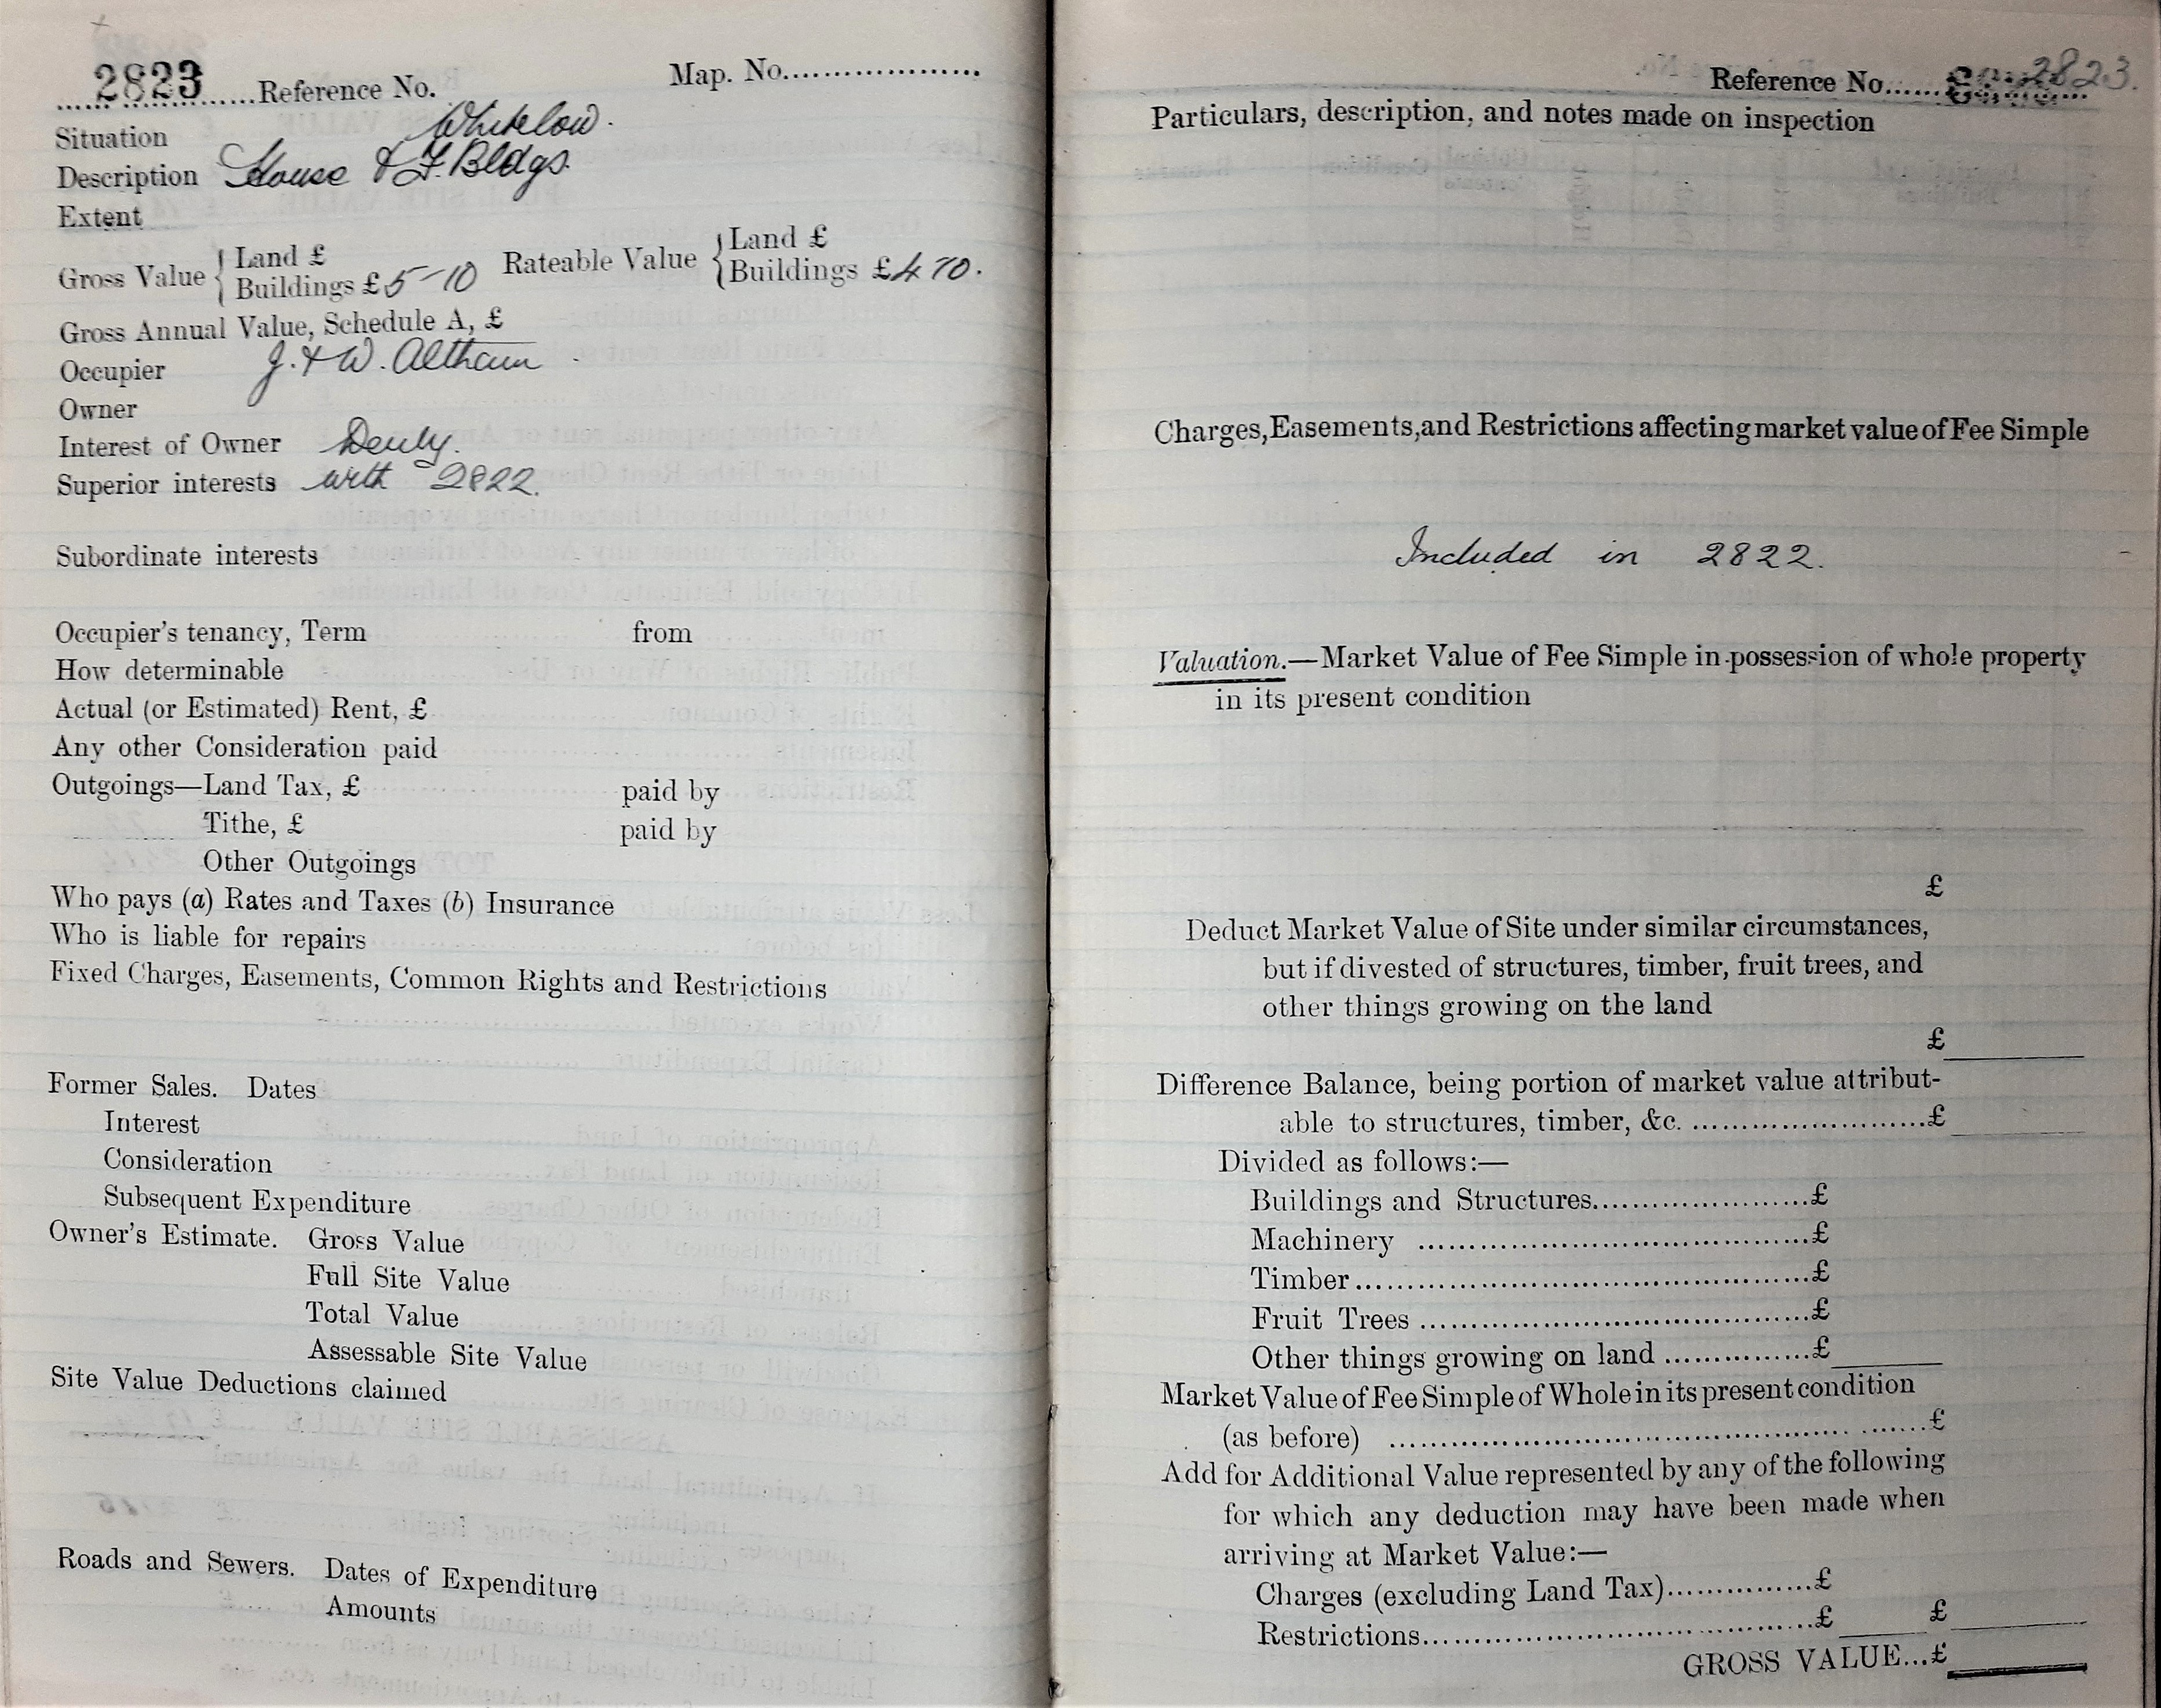 2823 Reference No. Map. No.
Situation Whitelow.
Description House & F. Bldgs.
Extent
Gross Value { Land £ Rateable Value { Land £
Buildings £ 5-10 Buildings £ 4 10.
Gross Annual Value, Schedule A, £
Occupier J. & W. Altham
Owner
Interest of Owner
Superior interests with 2822.
Subordinate interests
Occupier's tenancy, Term from
How determinable
Actual (or Estimated) Rent, £
Any other Consideration paid
Outgoings—Land Tax, £ paid by
Tithe, £ paid by
Other Outgoings
Who pays (a) Rates and Taxes (b) Insurance
Who is liable for repairs
Fixed Charges, Easements, Common Rights and Restrictions
Former Sales. Dates
Interest
Consideration
Subsequent Expenditure
Owner's Estimate. Gross Value
Full Site Value
Total Value
Assessable Site Value
Site Value Deductions claimed
Roads and Sewers. Dates of Expenditure
Amounts
Reference No. 2823.
Particulars, description, and notes made on inspection
Charges, Easements, and Restrictions affecting market value of Fee Simple
Included in 2822.
Valuation.—Market Value of Fee Simple in possession of whole property
in its present condition
£
Deduct Market Value of Site under similar circumstances,
but if divested of structures, timber, fruit trees, and
other things growing on the land
£
Difference Balance, being portion of market value attribut-
able to structures, timber, &c. £
Divided as follows:—
Buildings and Structures £
Machinery £
Timber £
Fruit Trees £
Other things growing on land £
Market Value of Fee Simple of Whole in its present condition
(as before) £
Add for Additional Value represented by any of the following
for which any deduction may have been made when
arriving at Market Value:—
Charges (excluding Land Tax) £
Restrictions £ £
GROSS VALUE...£